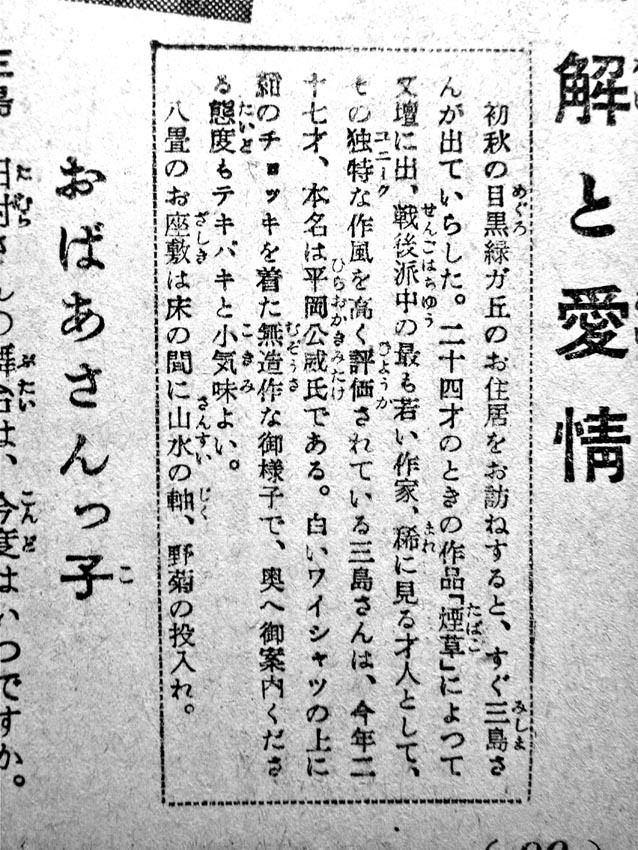 解と愛情
初秋の目黒緑ガ丘のお住居をお訪ねすると、すぐ三島さ
んが出ていらした。二十四才のときの作品「煙草」によつて
文壇に出、戦後派中の最も若い作家、稀に見る才人として、
その独特な作風を高く評価されている三島さんは、今年二
十七才、本名は平岡公威氏である。白いワイシャツの上に
紺のチョッキを着た無造作な御様子で、奥へ御案内くださ
る態度もテキパキと小気味よい。
八畳のお座敷は床の間に山水の軸、野菊の投入れ。
おばあさんっ子
三島 田村さんの舞台は、今度はいつですか。